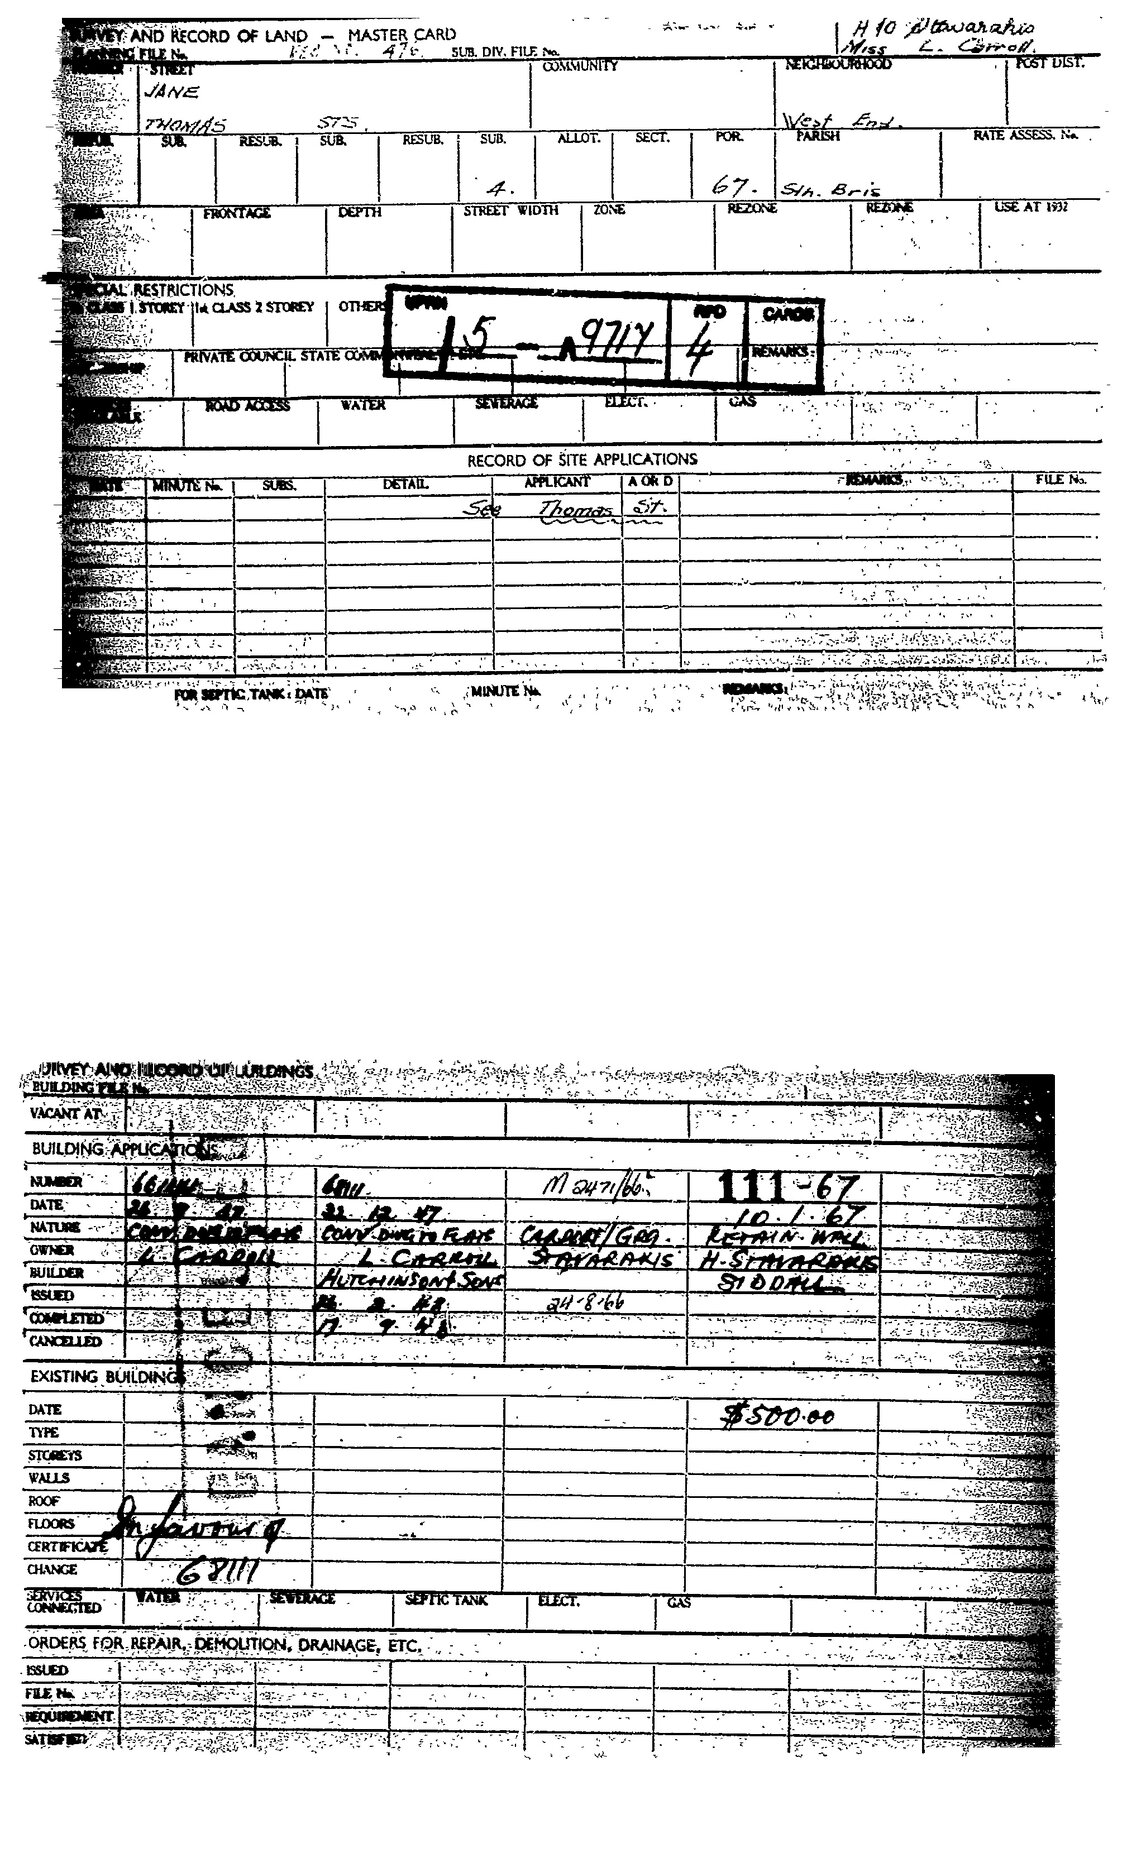 SURVEY AND RECORD OF LAND — MASTER CARD
H 10 Stavarakis
PLANNING FILE No. 476 SUB. DIV. FILE No. Miss L. Carroll.
NUMBER STREET COMMUNITY NEIGHBOURHOOD POST DIST.
JANE
THOMAS STS. West End.
SUB. RESUB. SUB. RESUB. SUB. ALLOT. SECT. POR. PARISH RATE ASSESS. No.
4. 67. Sth. Bris
AREA FRONTAGE DEPTH STREET WIDTH ZONE REZONE REZONE USE AT 1932
SPECIAL RESTRICTIONS
CLASS 1 STOREY 1st CLASS 2 STOREY OTHERS
UPRN RPD CARDS
5 - 9717 4
PRIVATE COUNCIL STATE REMARKS:
ROAD ACCESS WATER SEWERAGE ELECT. GAS
RECORD OF SITE APPLICATIONS
DATE MINUTE No. SUBS. DETAIL APPLICANT A OR D REMARKS. FILE No.
See Thomas St.
FOR SEPTIC TANK: DATE MINUTE No. REMARKS:
SURVEY AND RECORD OF BUILDINGS
BUILDING FILE No.
VACANT AT
BUILDING APPLICATIONS
NUMBER 68111. M 2471/66 111-67
DATE 22 12 47 10.1.67
NATURE CONV. DWG TO FLATS CONV. DWG TO FLATS CARPORT/GRG. RETAIN. WALL
OWNER L. CARROLL L. CARROLL STAVARAKIS H. STAVARAKIS
BUILDER HUTCHINSON & SONS SIDDALL
ISSUED 2 48 24-8-66
COMPLETED 17 9 48
CANCELLED
EXISTING BUILDINGS
DATE $500.00
TYPE
STOREYS
WALLS
ROOF
FLOORS In favour of
CERTIFICATE
CHANGE 68111
SERVICES CONNECTED WATER SEWERAGE SEPTIC TANK ELECT. GAS
ORDERS FOR REPAIR, DEMOLITION, DRAINAGE, ETC.
ISSUED
FILE No.
REQUIREMENT
SATISFIED